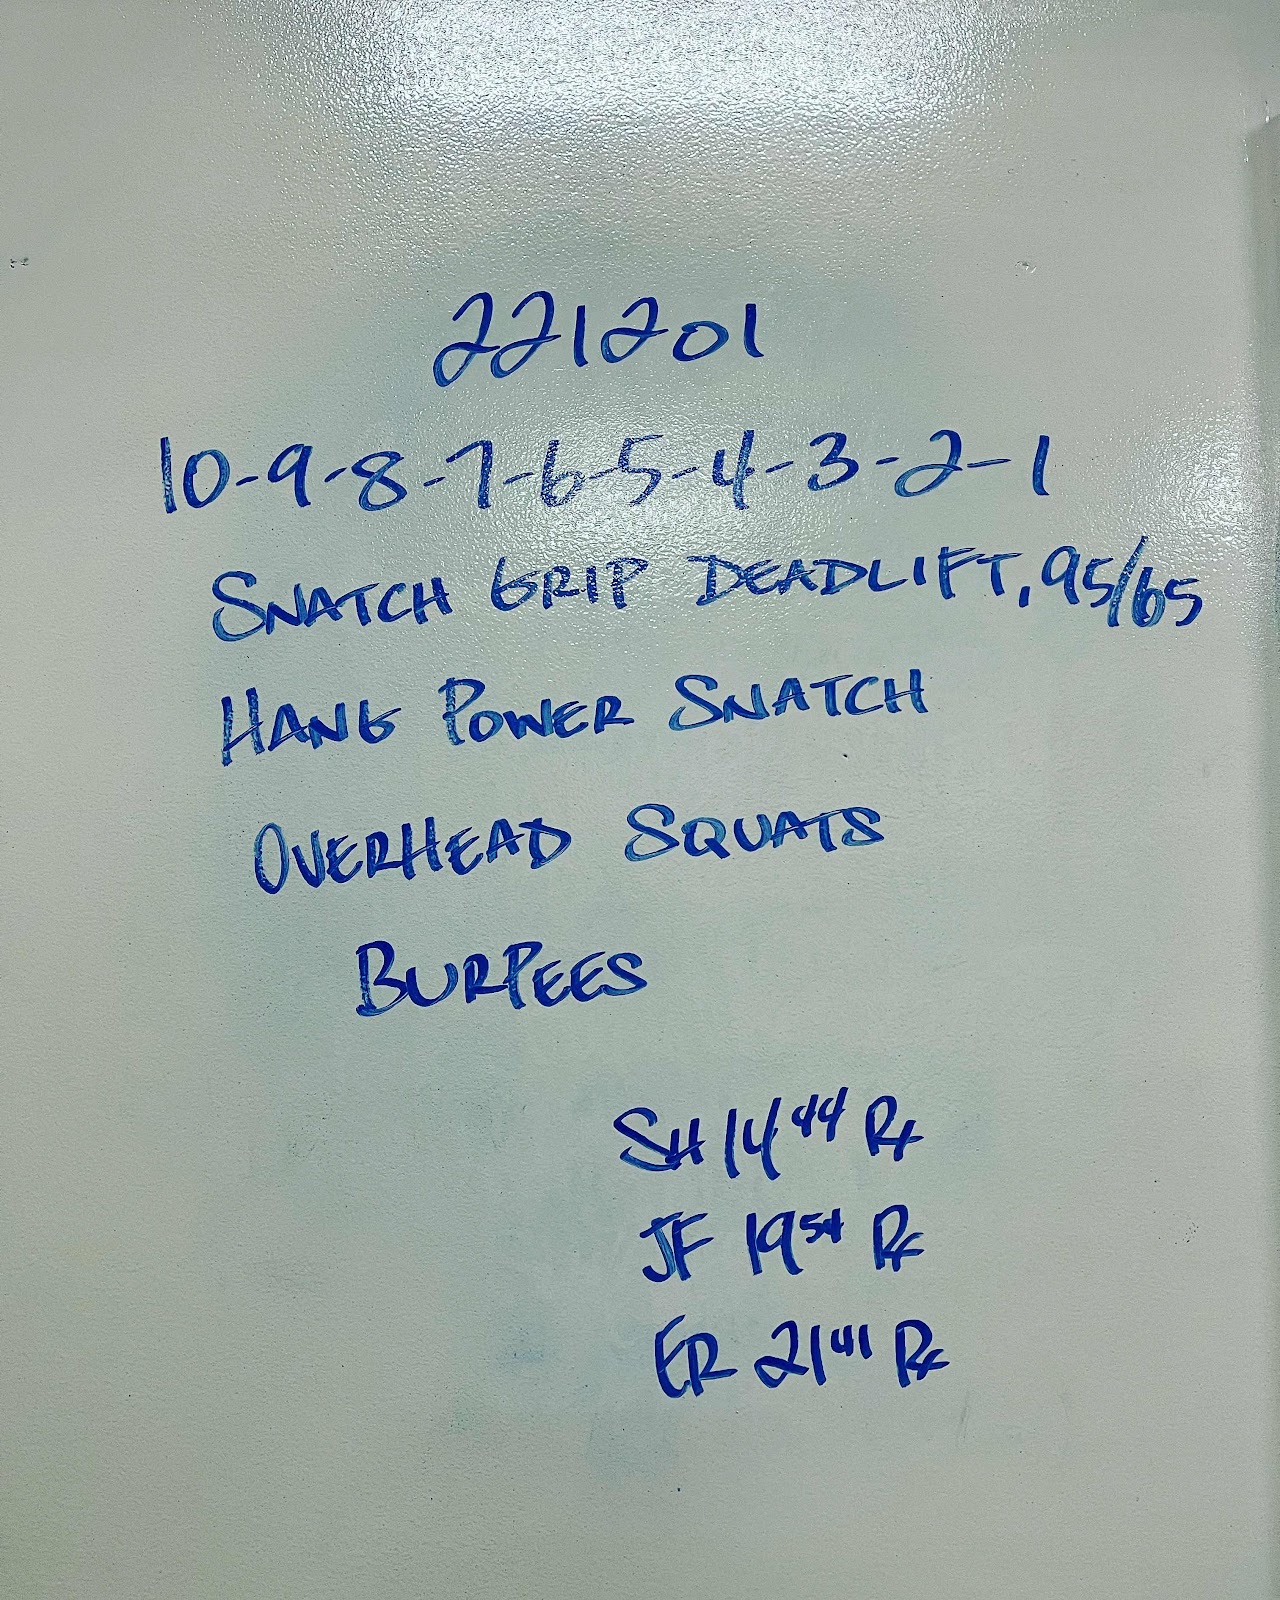 221201
10-9-8-7-6-5-4-3-2-1
SNATCH GRIP DEADLIFT, 95/65
HANG POWER SNATCH
OVERHEAD SQUATS
BURPEES
SH 14 44 Rx
JF 19 54 Rx
ER 21 41 Rx